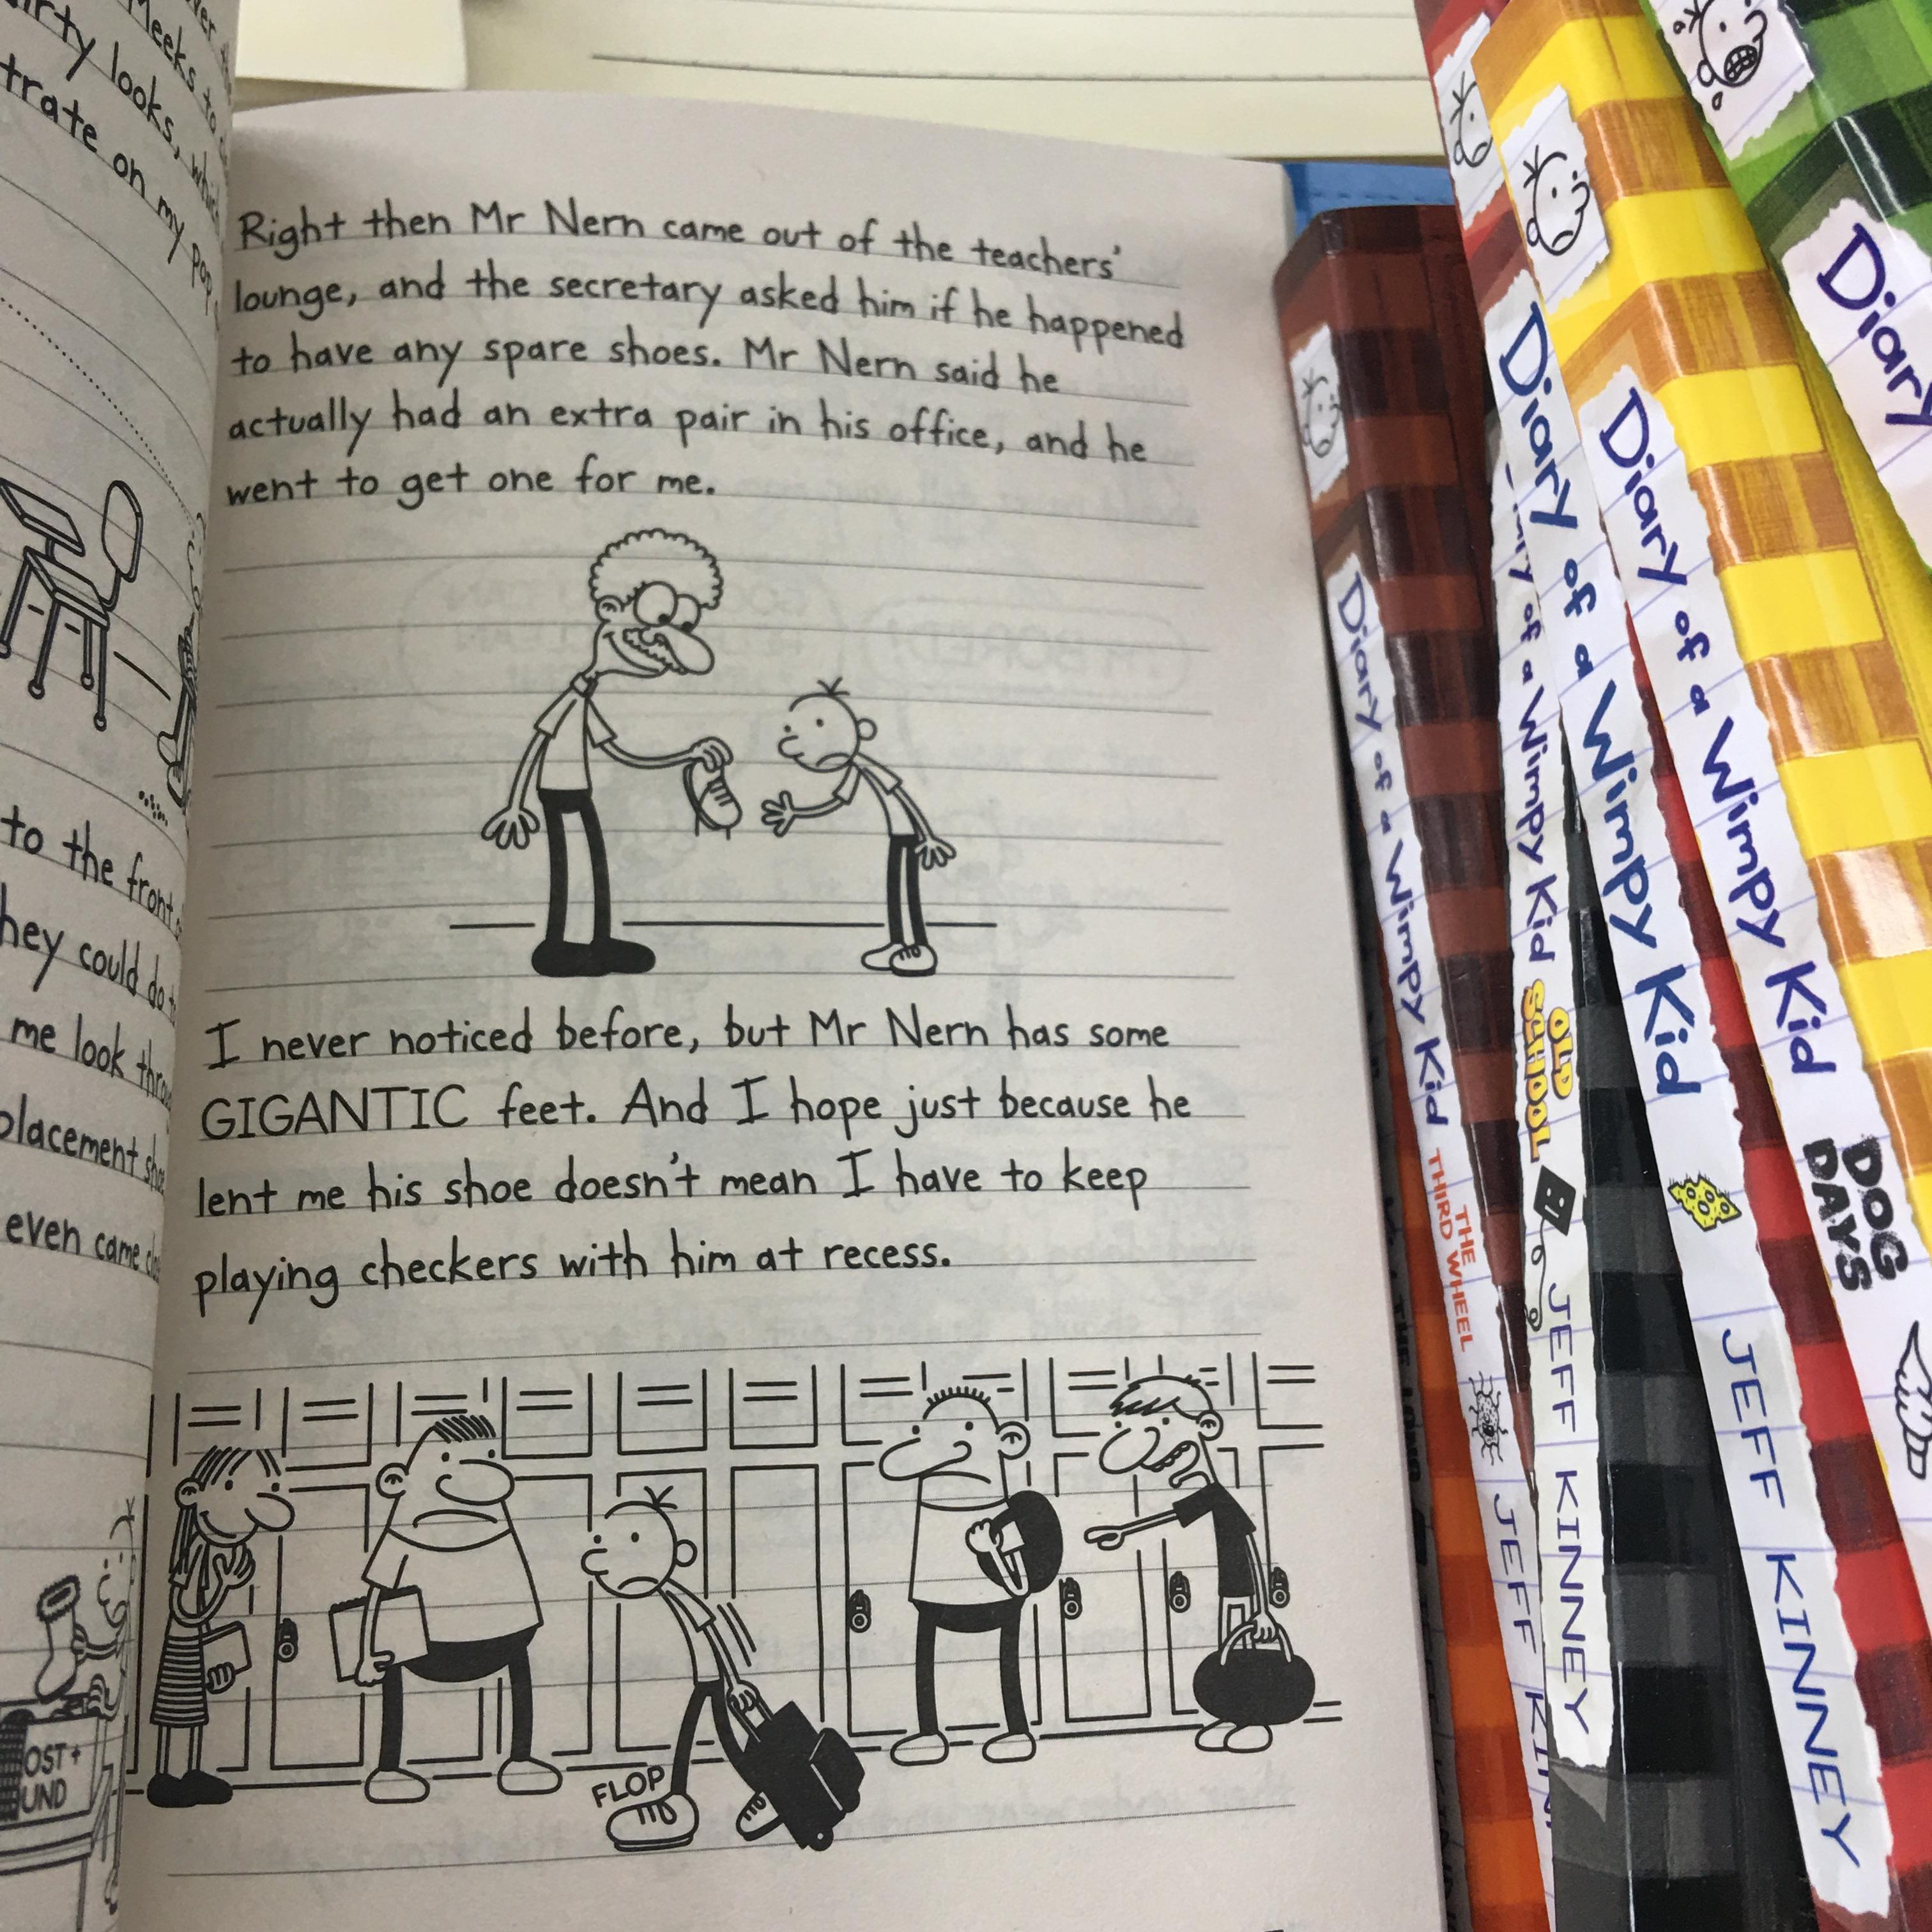 looks,
trate on my pop
to the front
they could do
me look
placement
even came
Right then Mr Nern came out of the teachers'
lounge, and the secretary asked him if he happened
to have any spare shoes. Mr Nern said he
actually had an extra pair in his office, and he
went to get one for me.
I never noticed before, but Mr Nern has some
GIGANTIC feet. And I hope just because he
lent me his shoe doesn't mean I have to keep
playing checkers with him at recess.
FLOP
Diary of a Wimpy Kid THE THIRD WHEEL JEFF
Diary of a Wimpy Kid OLD SCHOOL JEFF KINNEY
Diary of a Wimpy Kid JEFF KINNEY
Diary of a Wimpy Kid DOG DAYS
Diary